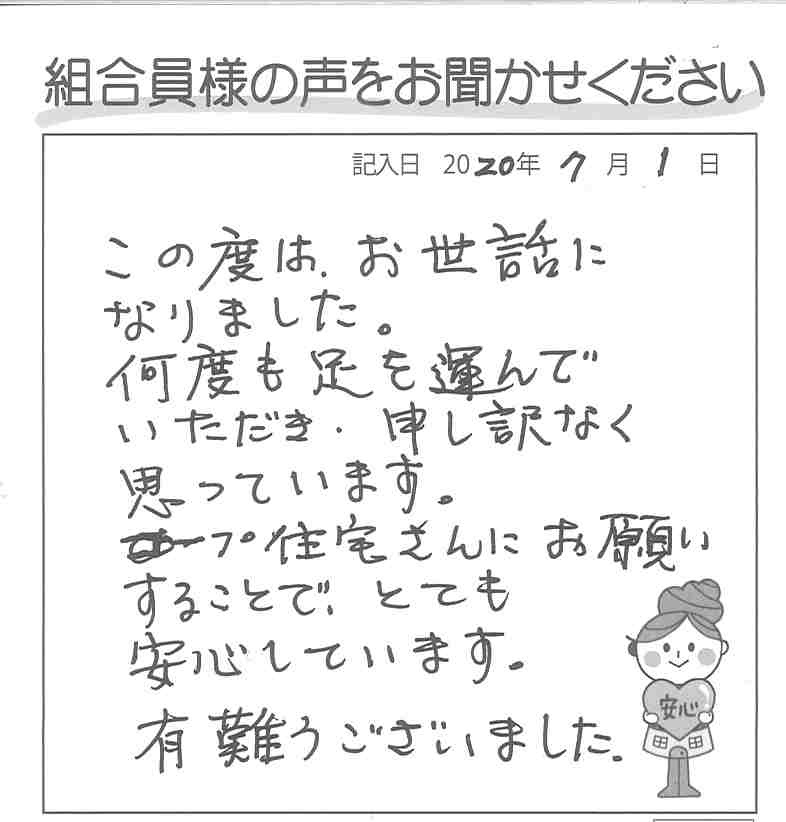 組合員様の声をお聞かせください
記入日 2020年 7月 1日
この度は、お世話に
なりました。
何度も足を運んで
いただき、申し訳なく
思っています。
コープ住宅さんにお願い
することで、とても
安心しています。
有難うございました。
安心